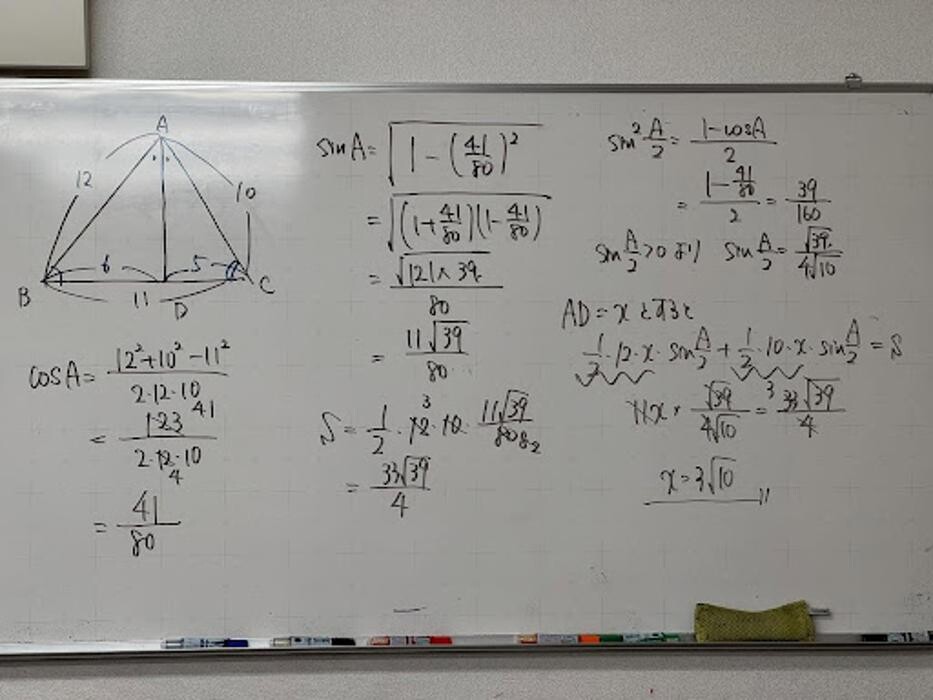 A
12
10
6
5
B
11
D
C
cosA = (12²+10²-11²)/(2·12·10)
= 123/(2·12·10) 41 4
= 41/80
sinA = √(1-(41/80)²)
= √((1+41/80)(1-41/80))
= √(121×39)/80
= 11√39/80
S = 1/2·12·10·11√39/80 3 8 2
= 33√39/4
sin²A/2 = (1-cosA)/2
= (1-41/80)/2 = 39/160
sinA/2>0より sinA/2 = √39/(4√10)
AD=xとすると
1/2·12·x·sinA/2 + 1/2·10·x·sinA/2 = S
11x × √39/(4√10) = 33√39/4 3
x=3√10